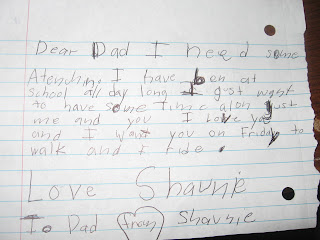 Dear Dad I need some
Atenchin. I have ben at
school all day long I gust want
to have some time alon Just
me and you I Love you
and I want you on Friday to
walk and I ride.
Love Shavnie
To Dad from Shavnie